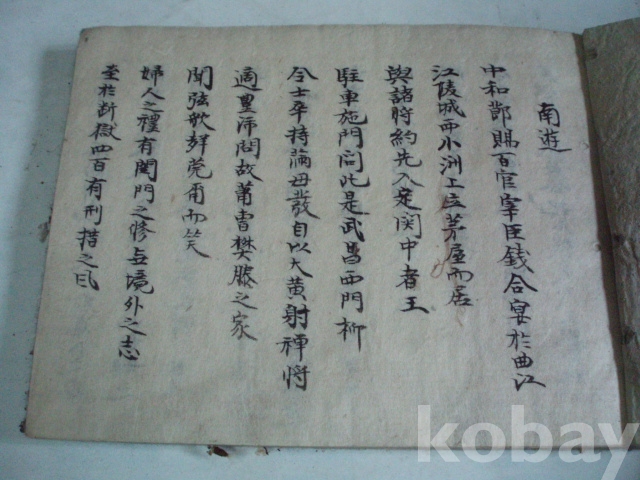 南遊
中和節賜百官宰臣錢合宴於曲江
江陵城西小洲上立茅屋而居
與諸將約先入定関中者王
駐車施門问此是武昌西門柳
令士卒持滿毋發自以大黃射裨將
適豊沛問故蕭曹樊滕之家
聞弦歌聲莞甭而笑
婦人之禮有閨門之修無境外之志
至於断獄四百有刑措之风
kobay